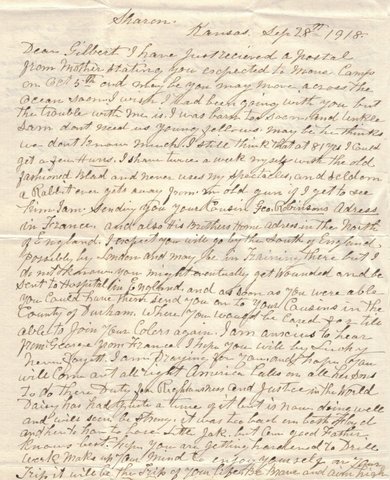 Sharon.
Kansas. Sep 28th 1918.
Dear Gilbert I have just recieved a postal
from Mother stating you expected to Move Camps
on Oct 5th and may be you may move across the
Ocean soon I wish I had been going with you but
the trouble with me is I was born too soon and Unkle
Sam dont need us young fellows may be he thinks
we dont know much I still think that at 81 yrs I could
get a few Huns. I shave twice a week myself with the old
fashioned Blad and never uses my Spectacles, and seldom
a Rabbit ever gets away from an old gun if I get to see
him I am Sending you your Cousin Geo Robinsons Adress
in France, and also his Brothers Home adress in the North
of England. I expect you will go by the South of England
possibly by London and may be in training there but I
do not know you might eventually get wounded and be
sent to Hospital in England, and as soon as you were able
you could have them send you on to your Cousins in the
County of Durham. where you would be cared for till
able to Join your Colors again I am ancious to hear
from George from France I hope you will be Lucky
I am Praying for you and hope you
will Com out all right America Calls on all her Sons
To do there Duty for Righteousness and Justice in the World
Daisy has had quite a time but is now doing well
and will soon be strong. it was be hard on both of
Father
Knows best. hope you are getting to Drill
work Make up your Mind to enjoy yourself on your
Trip it will be the Trip of your life. Be Brave and